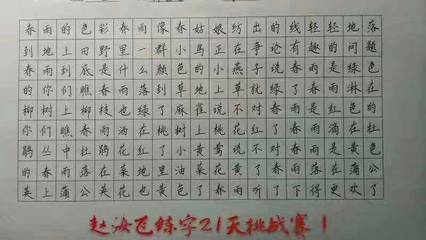 春雨的色彩春雨像春姑娘纺出的线轻轻地落
到地上田野里一群小鸟正在争论有趣的问题
春雨到底是什么颜色的小燕子说春雨是绿色
的你们瞧春雨落到草地上草就绿了春雨淋在
柳树上柳枝也绿了麻雀说不对春雨是红色的
你们瞧春雨洒在桃树上桃花红了春雨滴在杜
鹃丛中杜鹃花红了小黄莺说不对春雨是黄色
的春雨落在菜地里油菜花黄了春雨落在蒲公
英上蒲公英花也黄色了春雨听了下得更欢了
赵汝飞练字21天挑战赛1